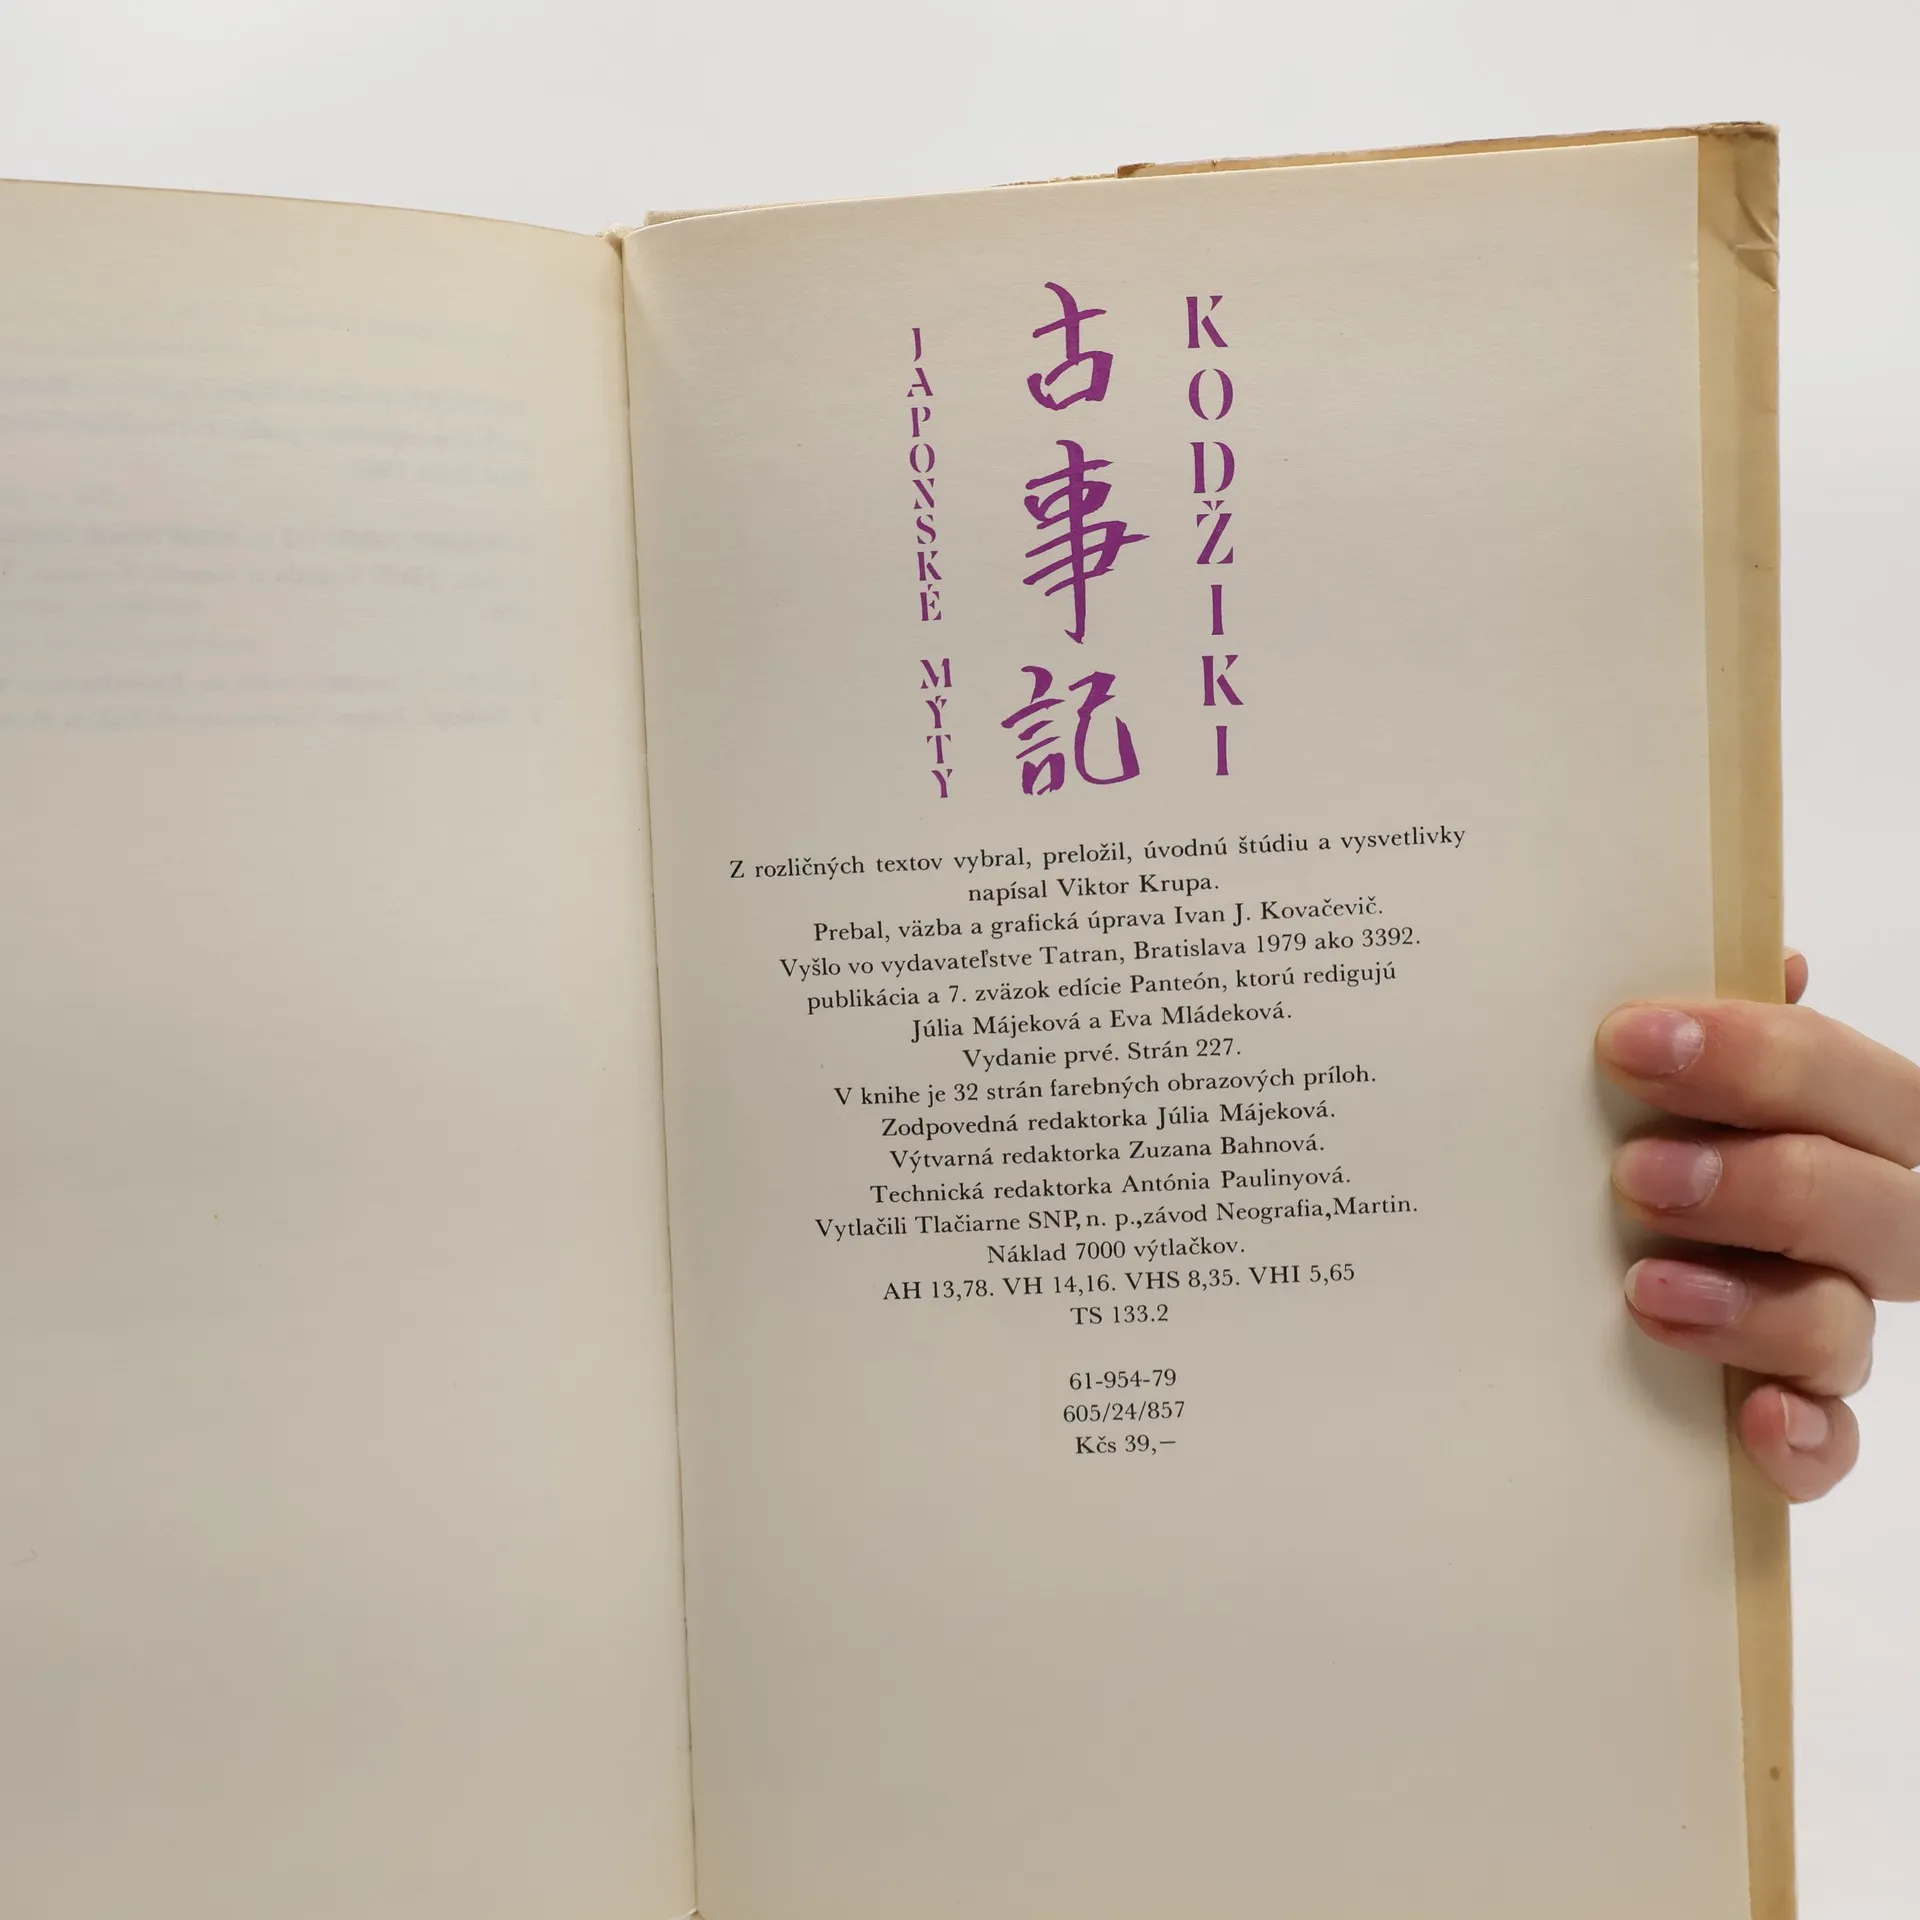 KODŽIKI
古事記
JAPONSKÉ MÝTY
Z rozličných textov vybral, preložil, úvodnú štúdiu a vysvetlivky
napísal Viktor Krupa.
Prebal, väzba a grafická úprava Ivan J. Kovačevič.
Vyšlo vo vydavateľstve Tatran, Bratislava 1979 ako 3392.
publikácia a 7. zväzok edície Panteón, ktorú redigujú
Júlia Májeková a Eva Mládeková.
Vydanie prvé. Strán 227.
V knihe je 32 strán farebných obrazových príloh.
Zodpovedná redaktorka Júlia Májeková.
Výtvarná redaktorka Zuzana Bahnová.
Technická redaktorka Antónia Paulinyová.
Vytlačili Tlačiarne SNP, n. p.,závod Neografia,Martin.
Náklad 7000 výtlačkov.
AH 13,78. VH 14,16. VHS 8,35. VHI 5,65
TS 133.2
61-954-79
605/24/857
Kčs 39,—